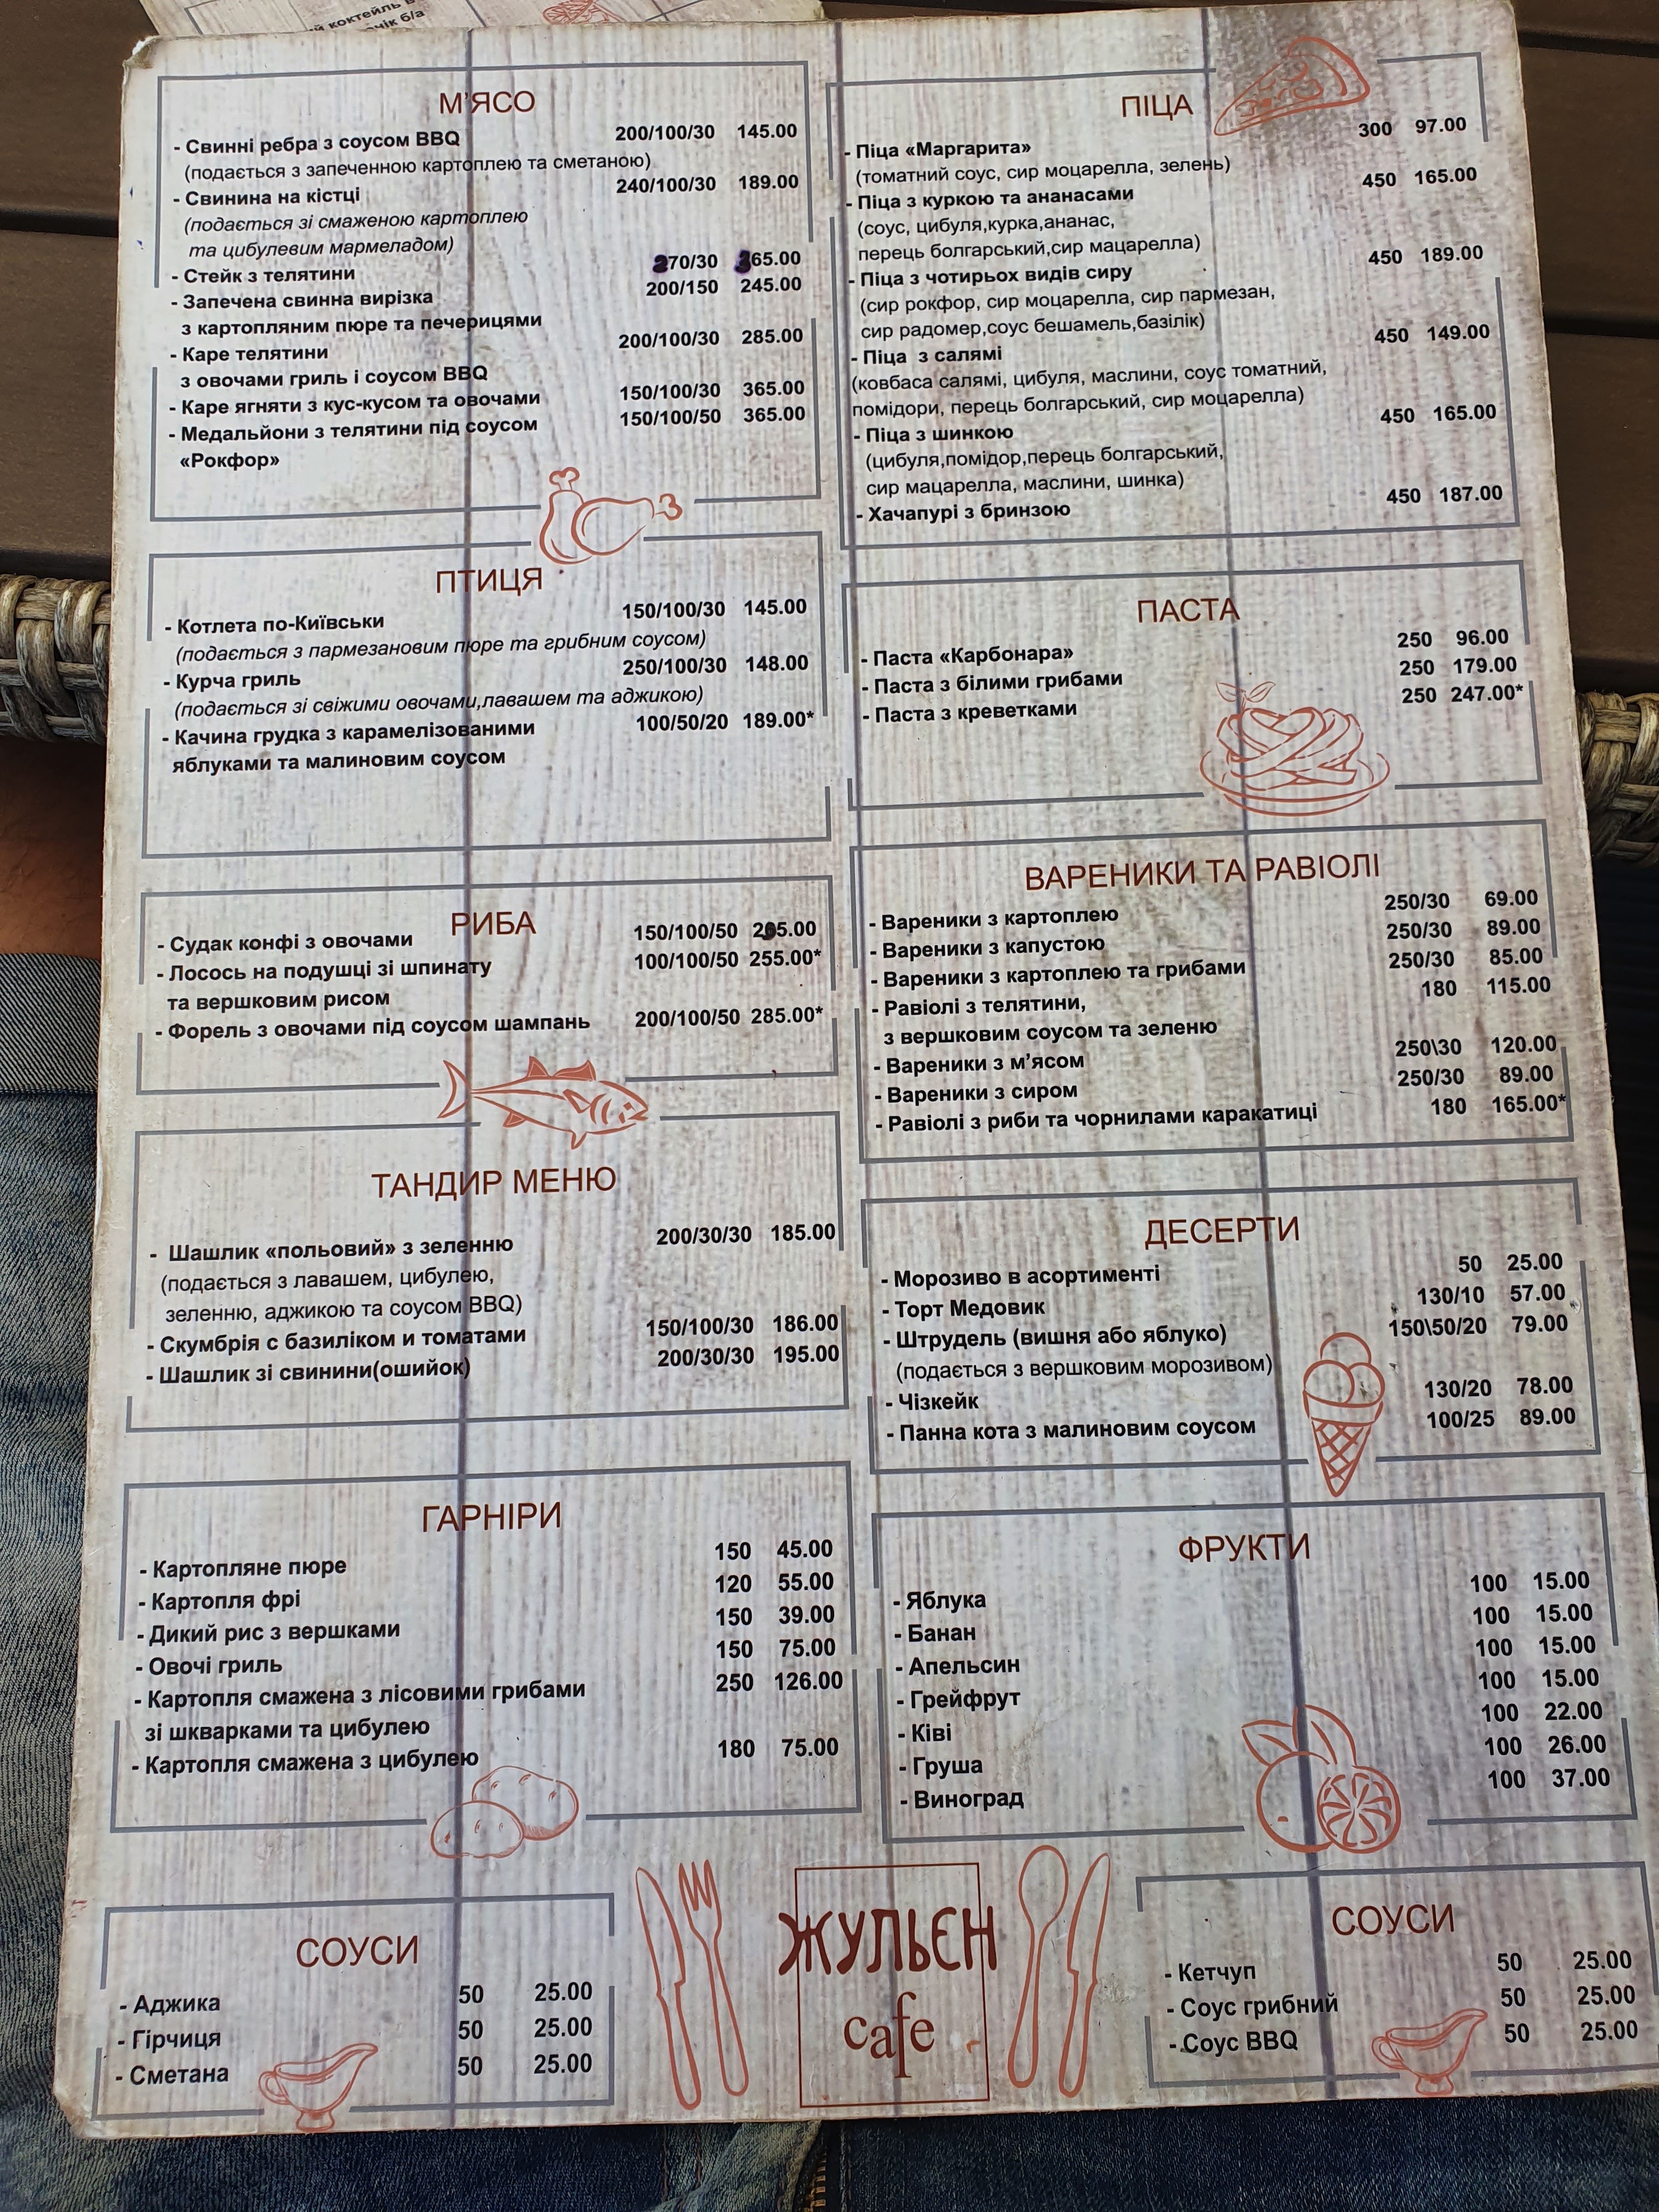 й коктейль
чік б/а
М'ЯСО
- Свинні ребра з соусом BBQ 200/100/30 145.00
(подається з запеченною картоплею та сметаною)
- Свинина на кістці 240/100/30 189.00
(подається зі смаженою картоплею
та цибулевим мармеладом)
- Стейк з телятини 270/30 365.00
- Запечена свинна вирізка 200/150 245.00
з картопляним пюре та печерицями
- Каре телятини 200/100/30 285.00
з овочами гриль і соусом BBQ
- Каре ягняти з кус-кусом та овочами 150/100/30 365.00
- Медальйони з телятини під соусом 150/100/50 365.00
«Рокфор»
ПТИЦЯ
- Котлета по-Київськи 150/100/30 145.00
(подається з пармезановим пюре та грибним соусом)
- Курча гриль 250/100/30 148.00
(подається зі свіжими овочами,лавашем та аджикою)
- Качина грудка з карамелізованими 100/50/20 189.00*
яблуками та малиновим соусом
РИБА
- Судак конфі з овочами 150/100/50
- Лосось на подушці зі шпинату 100/100/50 255.00*
та вершковим рисом
- Форель з овочами під соусом шампань 200/100/50 285.00*
ТАНДИР МЕНЮ
- Шашлик «польовий» з зеленню 200/30/30 185.00
(подається з лавашем, цибулею,
зеленню, аджикою та соусом BBQ)
- Скумбрія с базиліком и томатами 150/100/30 186.00
- Шашлик зі свинини(ошийок) 200/30/30 195.00
ГАРНІРИ
- Картопляне пюре 150 45.00
- Картопля фрі 120 55.00
- Дикий рис з вершками 150 39.00
- Овочі гриль 150 75.00
- Картопля смажена з лісовими грибами 250 126.00
зі шкварками та цибулею
- Картопля смажена з цибулею 180 75.00
СОУСИ
- Аджика 50 25.00
- Гірчиця 50 25.00
- Сметана 50 25.00
ПІЦА
- Піца «Маргарита» 300 97.00
(томатний соус, сир моцарелла, зелень)
- Піца з куркою та ананасами 450 165.00
(соус, цибуля,курка,ананас,
перець болгарський,сир мацарелла)
- Піца з чотирьох видів сиру 450 189.00
(сир рокфор, сир моцарелла, сир пармезан,
сир радомер,соус бешамель,базілік)
- Піца з салямі 450 149.00
(ковбаса салямі, цибуля, маслини, соус томатний,
помідори, перець болгарський, сир моцарелла)
- Піца з шинкою 450 165.00
(цибуля,помідор,перець болгарський,
сир мацарелла, маслини, шинка)
- Хачапурі з бринзою 450 187.00
ПАСТА
- Паста «Карбонара» 250 96.00
- Паста з білими грибами 250 179.00
- Паста з креветками 250 247.00*
ВАРЕНИКИ ТА РАВІОЛІ
- Вареники з картоплею 250/30 69.00
- Вареники з капустою 250/30 89.00
- Вареники з картоплею та грибами 250/30 85.00
- Равіолі з телятини, 180 115.00
з вершковим соусом та зеленю
- Вареники з м'ясом 250\30 120.00
- Вареники з сиром 250/30 89.00
- Равіолі з риби та чорнилами каракатиці 180 165.00*
ДЕСЕРТИ
- Морозиво в асортименті 50 25.00
- Торт Медовик 130/10 57.00
- Штрудель (вишня або яблуко) 150\50/20 79.00
(подається з вершковим морозивом)
- Чізкейк 130/20 78.00
- Панна кота з малиновим соусом 100/25 89.00
ФРУКТИ
- Яблука 100 15.00
- Банан 100 15.00
- Апельсин 100 15.00
- Грейфрут 100 15.00
- Ківі 100 22.00
- Груша 100 26.00
- Виноград 100 37.00
ЖУЛЬЄН
cafe
СОУСИ
- Кетчуп 50 25.00
- Соус грибний 50 25.00
- Соус BBQ 50 25.00